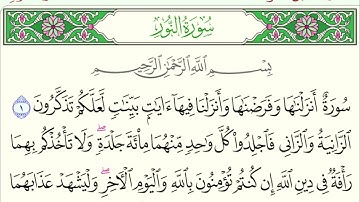 سُورَةُ النُّورِ
بِسْمِ اللَّهِ الرَّحْمَٰنِ الرَّحِيمِ
سُورَةٌ أَنزَلْنَٰهَا وَفَرَضْنَٰهَا وَأَنزَلْنَا فِيهَآ ءَايَٰتِۭ بَيِّنَٰتٖ لَّعَلَّكُمْ تَذَكَّرُونَ ١
ٱلزَّانِيَةُ وَٱلزَّانِي فَٱجْلِدُوا۟ كُلَّ وَٰحِدٖ مِّنْهُمَا مِا۟ئَةَ جَلْدَةٖۖ وَلَا تَأْخُذْكُم بِهِمَا
رَأْفَةٞ فِي دِينِ ٱللَّهِ إِن كُنتُمْ تُؤْمِنُونَ بِٱللَّهِ وَٱلْيَوْمِ ٱلْءَاخِرِۖ وَلْيَشْهَدْ عَذَابَهُمَا